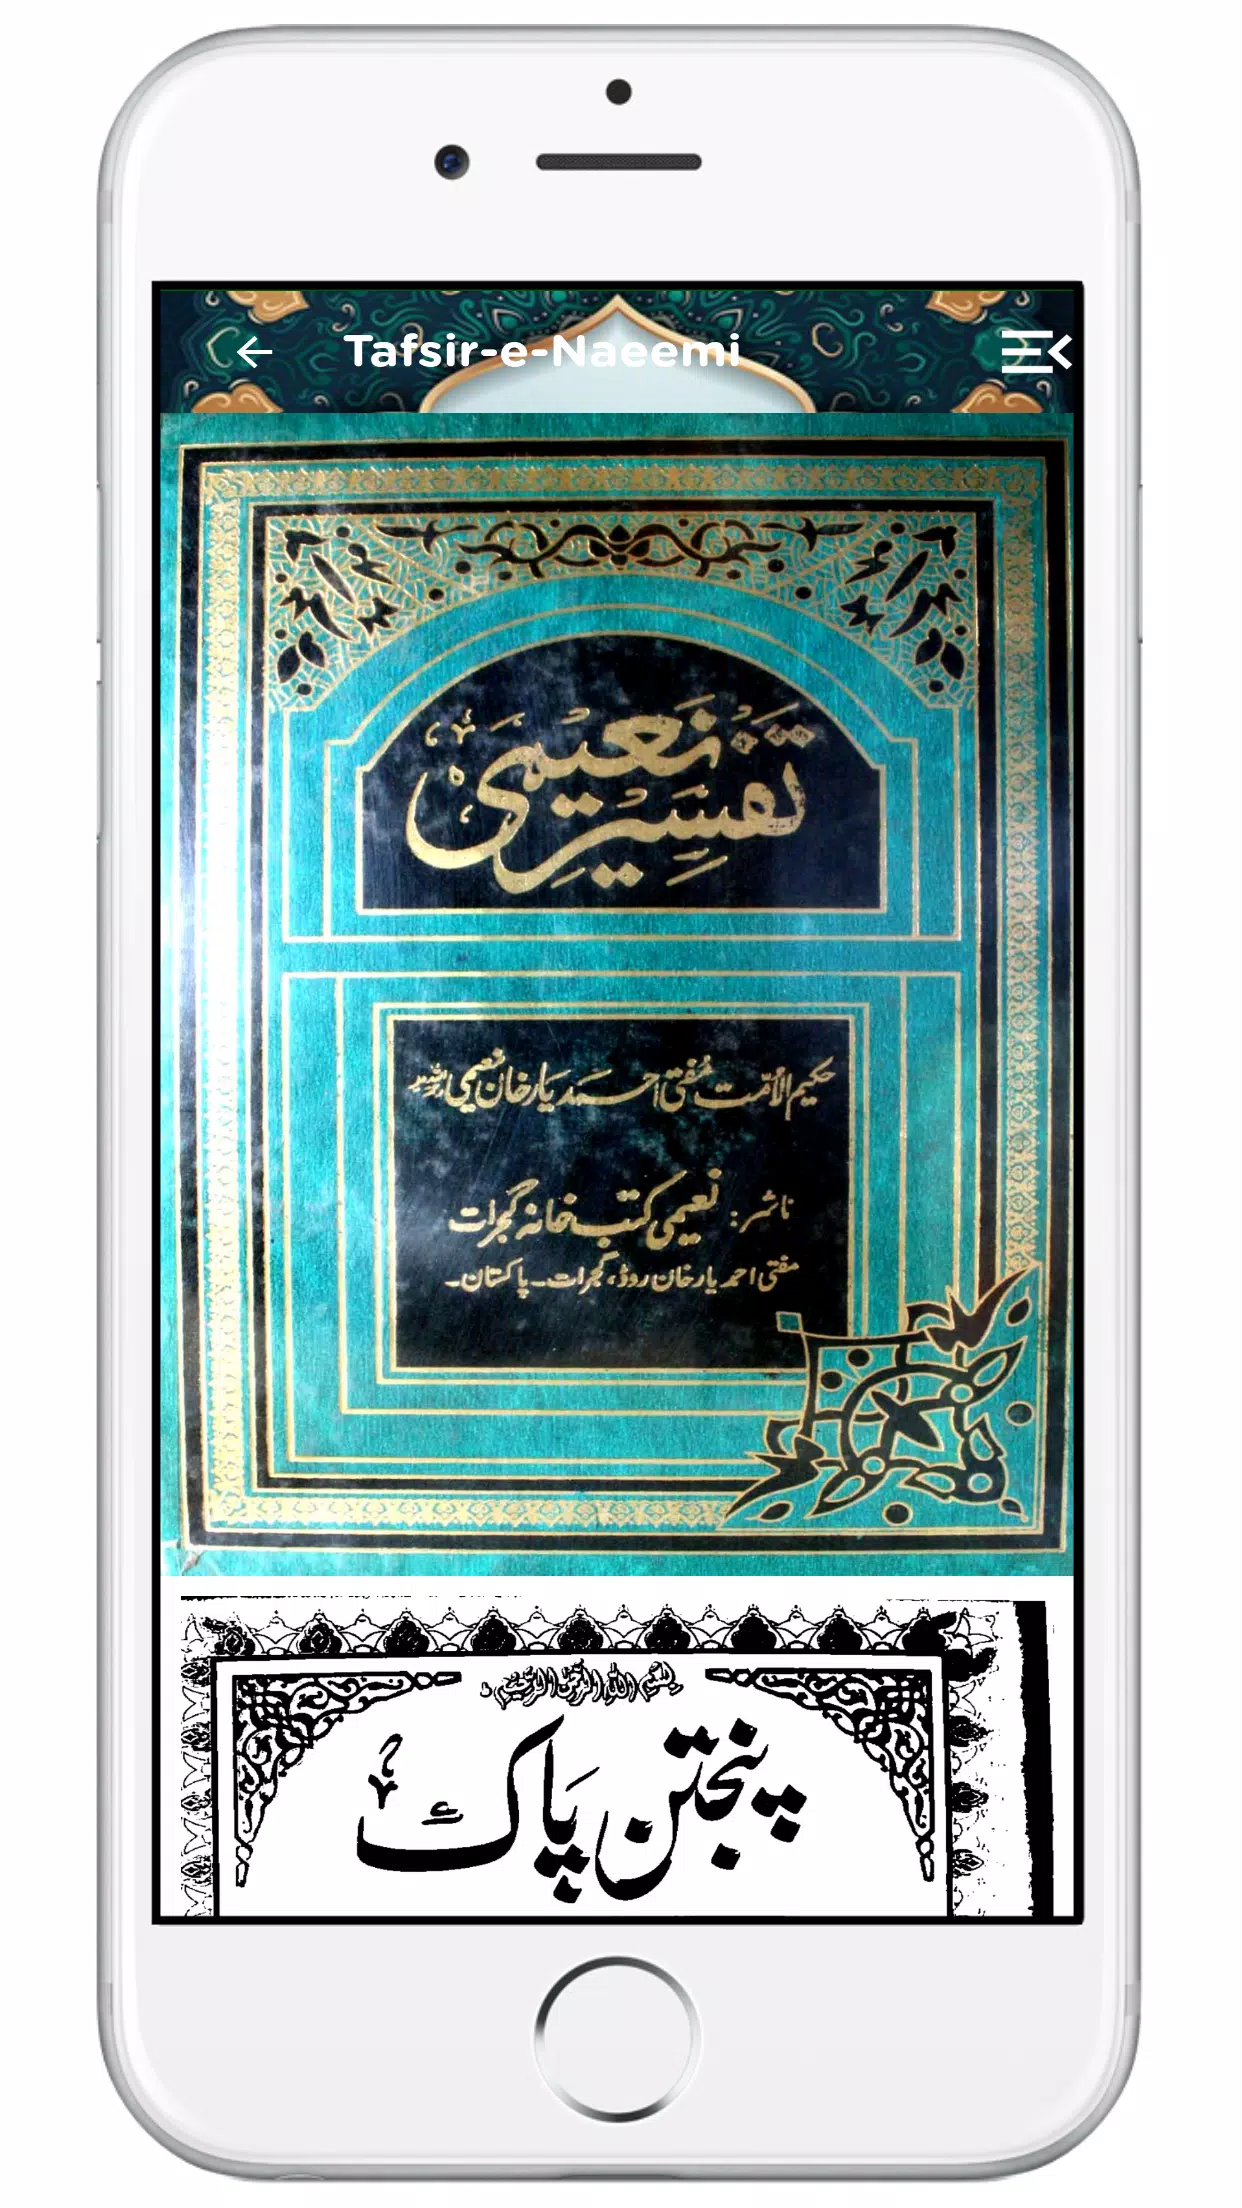 Tafsir-e-Naeemi
تفسیر نعیمی
حکیم الامت مفتی احمد یار خان نعیمی
ناشر: نعیمی کتب خانہ گجرات
مفتی احمد یار خان روڈ، گجرات۔ پاکستان۔
بسم اللہ الرحمن الرحیم
پنجتن پاک